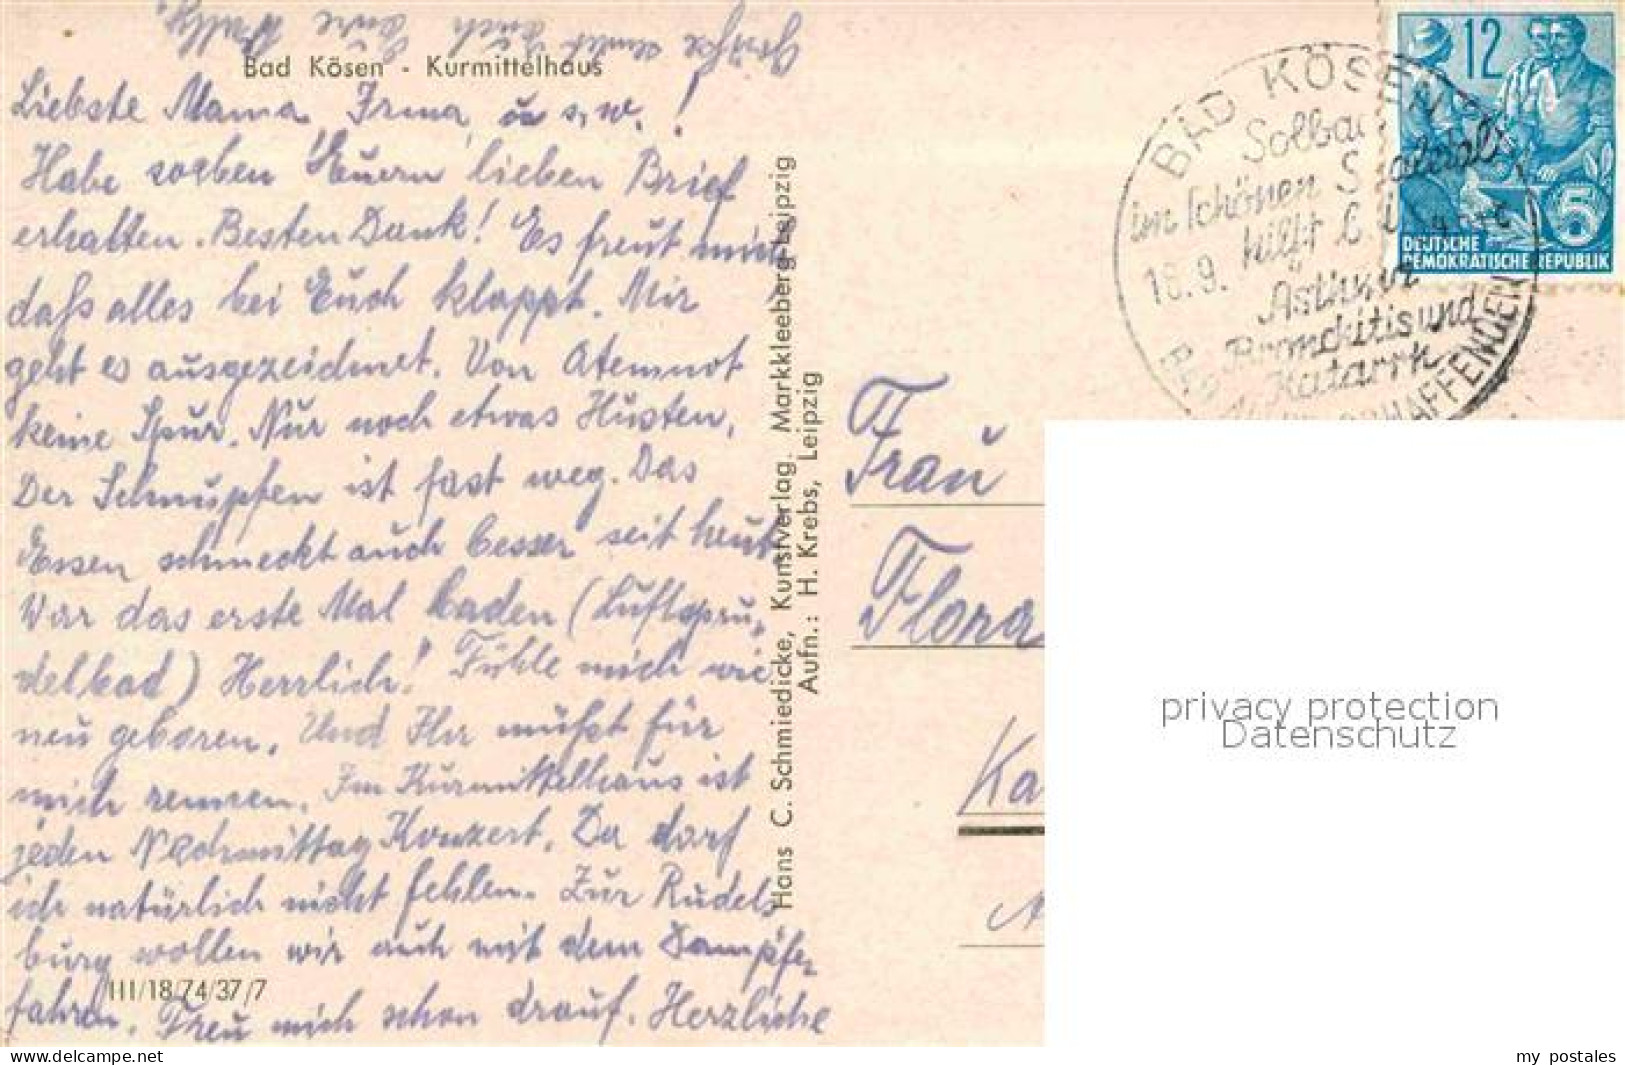 Bad Kösen - Kurmittelhaus
Liebste Mama Irma u s.w.!
Habe soeben Euern lieben Brief
erhalten. Besten Dank! Es freut mich
daß alles bei Euch klappt. Mir
geht es ausgezeichnet. Von Atemnot
keine Spur. Nur noch etwas Husten,
Der Schnupfen ist fast weg. Das
Essen schmeckt auch besser seit heut.
War das erste Mal baden (Luftspru„
delbad) Herrlich! Fühle mich wie
neu geboren. Und Ihr müßt für
mich rennen. Im Kurmittelhaus ist
jeden Nachmittag Konzert. Da darf
ich natürlich nicht fehlen. Zur Rudels
burg wollen wir auch mit dem Dampfer
fahren. Freu mich schon drauf. Herzliche
Grüße
III/18/74/37/7
Hans C. Schmiedicke, Kunstverlag. Markkleeberg-Leipzig
Aufn.: H. Krebs, Leipzig
BAD KÖSEN
Solbad
im schönen Saaletal
hilft b.
18.9.
Asthma
Bronchitis und
Katarrh
BAD SCHAFFENDEN
12
5
DEUTSCHE
DEMOKRATISCHE REPUBLIK
Frau
Flora
Ka
privacy protection
Datenschutz
www.delcampe.net
my postales